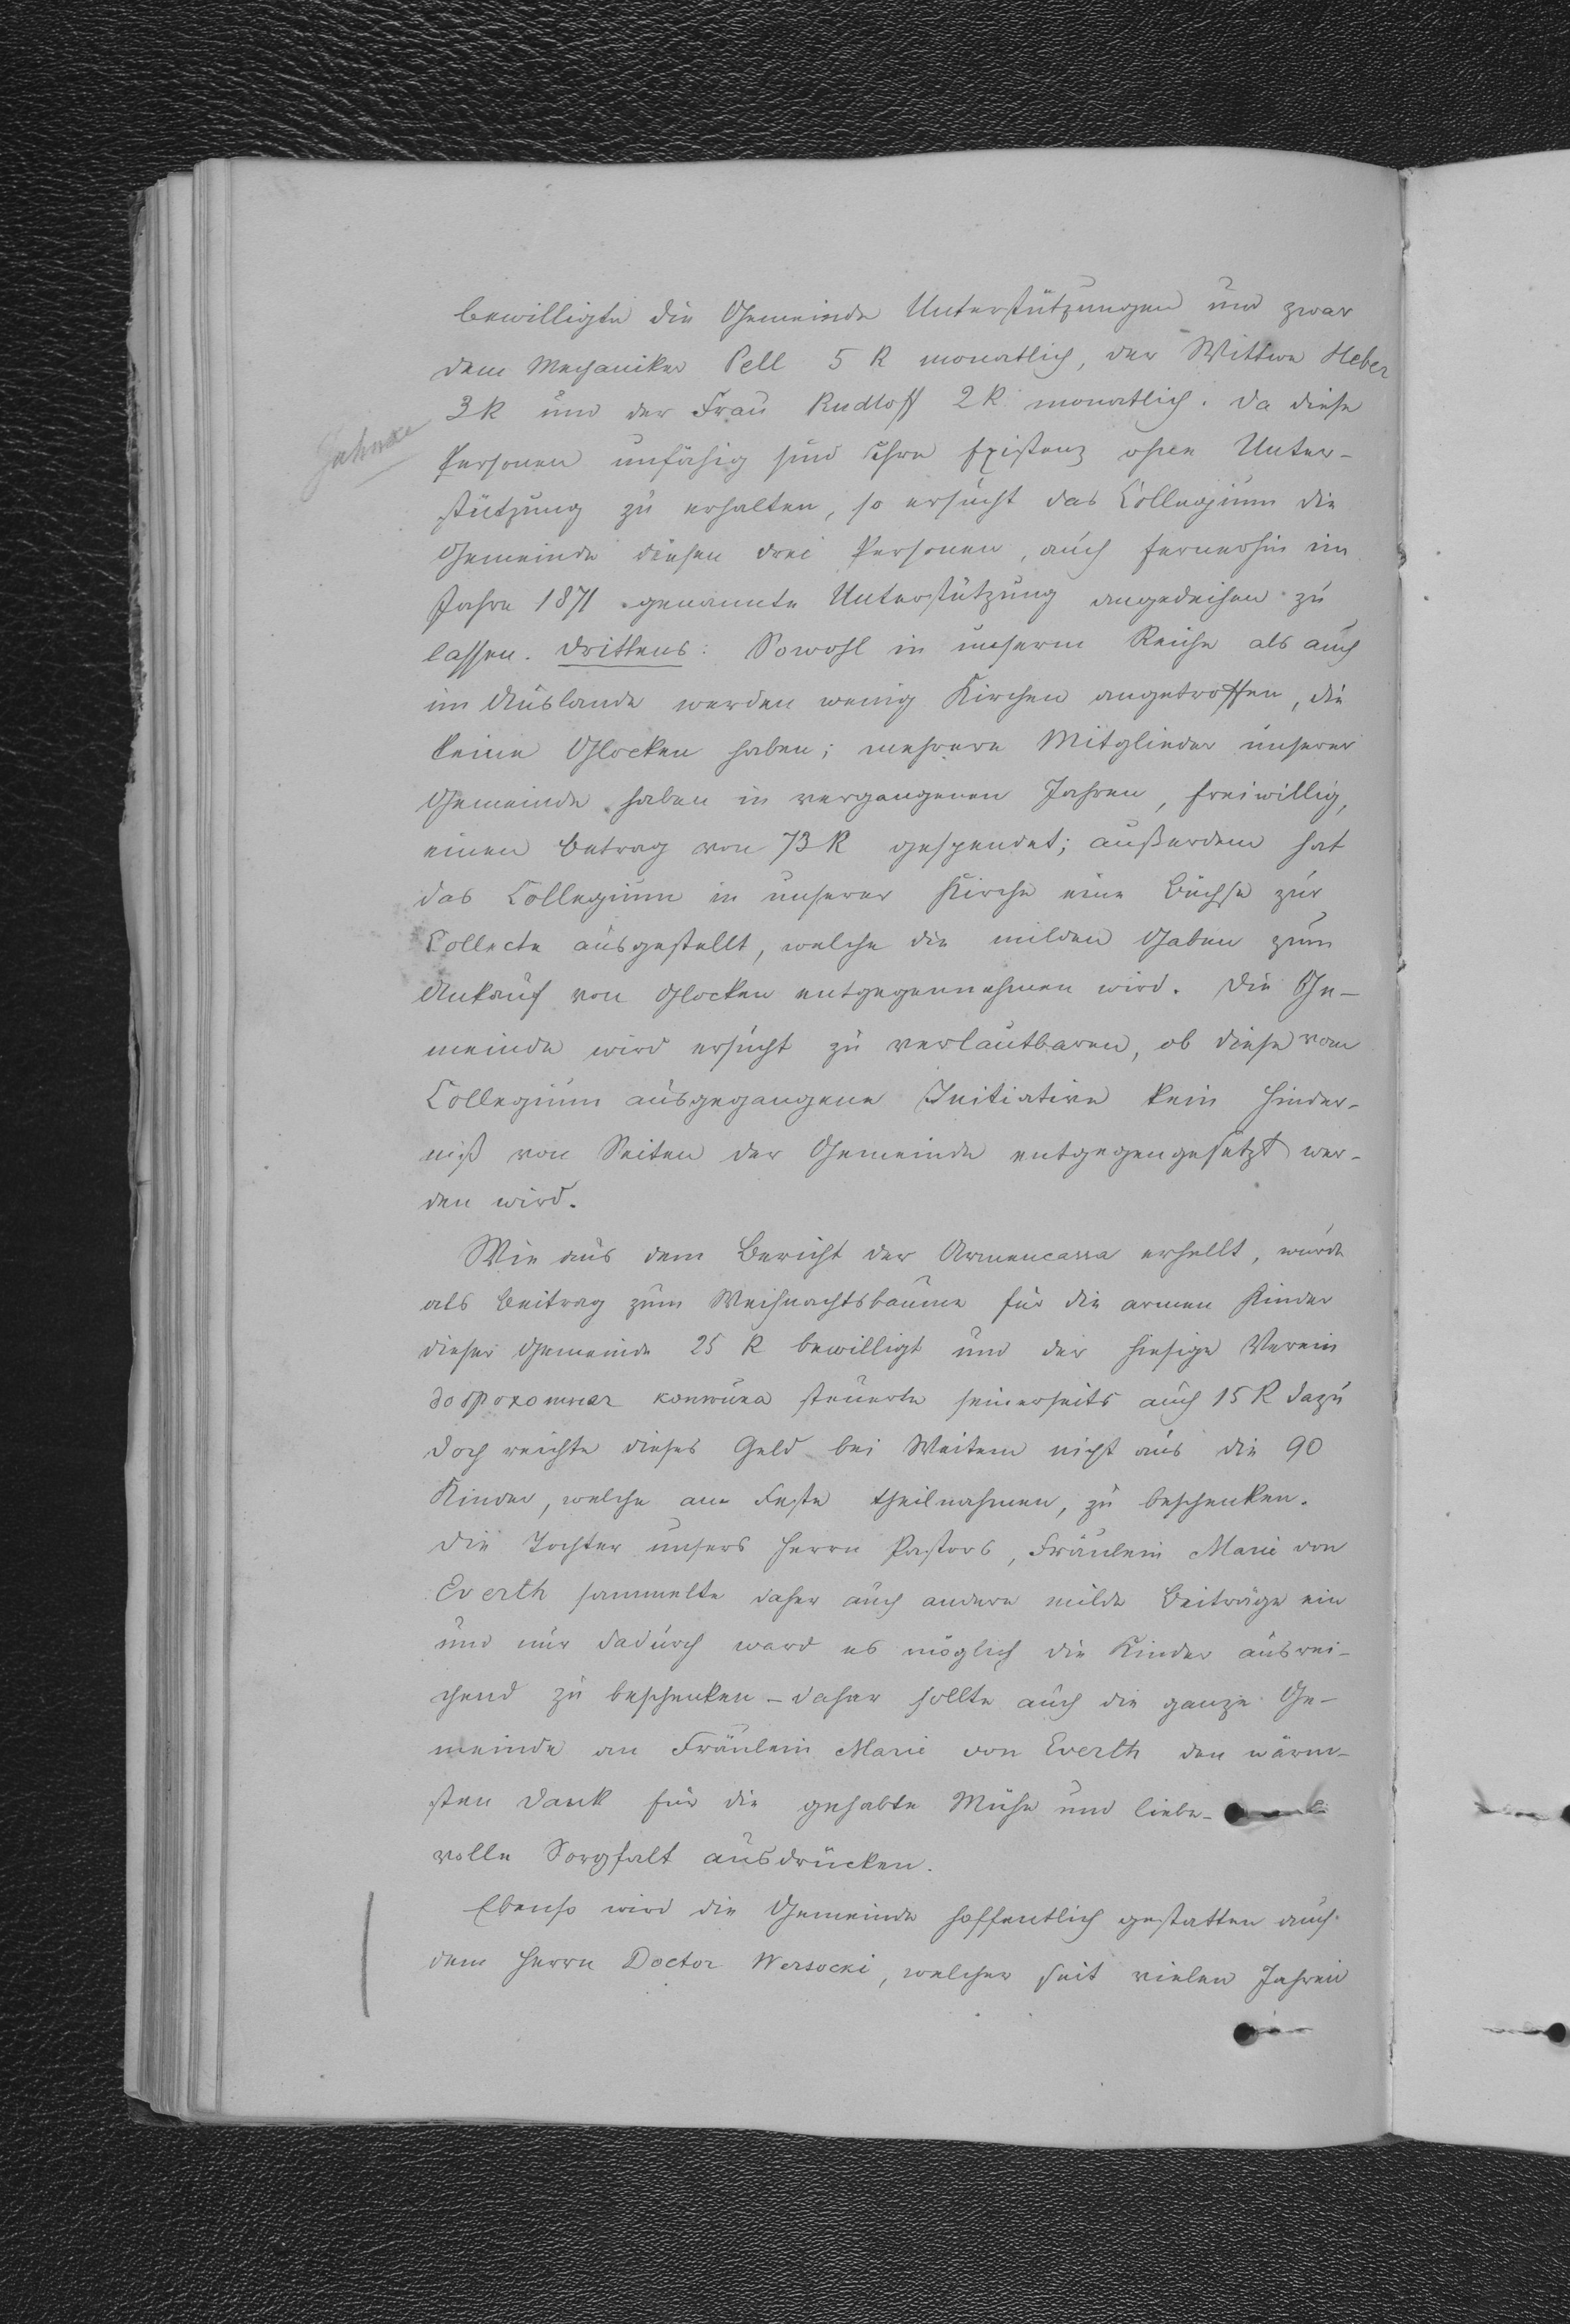 bewilligte die Gemeinde Unterstützungen und zwar
dem Mechaniker Pell 5 R monatlich, der Wittwe Heber
3 R und der Frau Rudloff 2 R monatlich. Da diese
Personen unfähig sind ihre Existenz ohne Unter-
stützung zu erhalten, so ersucht das Collegium die
Gemeinde diesen drei Personen, auch fernerhin im
Jahre 1871 genannte Unterstützung angedeihen zu
lassen. Drittens: Sowohl in unserm Reiche als auch
im Auslande werden wenig Kirchen angetroffen, die
keine Glocken haben; mehrere Mitglieder unserer
Gemeinde haben in vergangenen Jahren, freiwillig,
einen Betrag von 73 R gespendet; außerdem hat
das Collegium in unserer Kirche eine Büchse zur
Collecte ausgestellt, welche die milden Gaben zum
Ankauf von Glocken entgegennehmen wird. Die Ge-
meinde wird ersucht zu verlautbaren, ob diese vom
Collegium ausgegangene Initiative kein Hinder-
niß von Seiten der Gemeinde entgegengesetzt wer-
den wird.
Wie aus dem Bericht der Armencassa erhellt, wurde
als Beitrag zum Weihnachtsbaume für die armen Kinder
dieser Gemeinde 25 R bewilligt und der hiesige Verein
доброхотная копѣйка steuerte seinerseits auch 15 R dazu
doch reichte dieses Geld bei Weitem nicht aus die 90
Kinder, welche am Feste theilnahmen, zu beschenken.
Die Tochter unsers Herrn Pastors, Fräulein Marie von
Everth sammelte daher auch andere milde Beiträge ein
und nur dadurch ward es möglich die Kinder ausrei-
chend zu beschenken – daher sollte auch die ganze Ge-
meinde an Fräulein Marie von Everth den wärm-
sten Dank für die gehabte Mühe und liebe-
volle Sorgfalt ausdrücken.
Ebenso wird die Gemeinde hoffentlich gestatten auch
dem Herrn Doctor Wersocki, welcher seit vielen Jahren